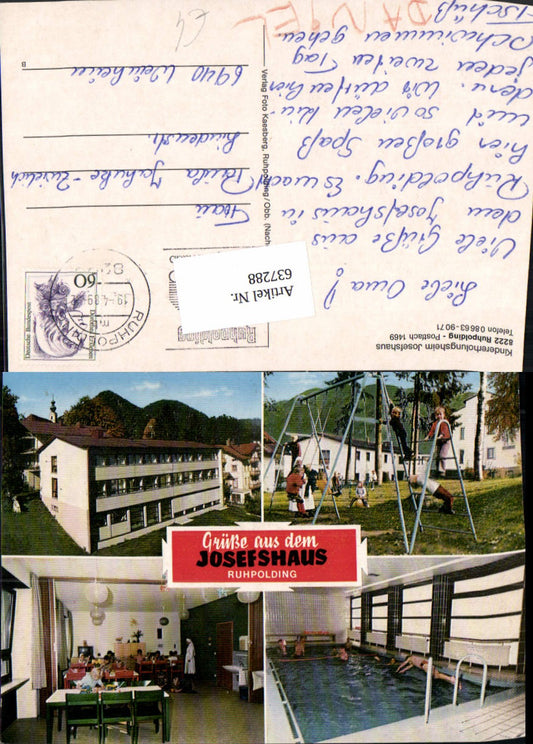 Kindererholungsheim Josefshaus
8222 Ruhpolding - Postfach 1469
Telefon 08663-9071
Liebe Oma!
Viele Grüße aus
dem Josefshaus in
Ruhpolding. Es macht
hier großen Spaß
und so vielen
dern. Wir dürfen hier
jeden zweiten Tag
Schwimmen gehen
Tschüß
DANIEL
Verlag Foto Kaesberg, Ruhpolding/Obb.
Deutsche Bundespost
60
RUHPOLDING
19.-4.89
Ruhpolding
Artikel Nr.
637288
Frau
Lindenstr.
6940 Weinheim
B
Grüße aus dem
JOSEFSHAUS
RUHPOLDING